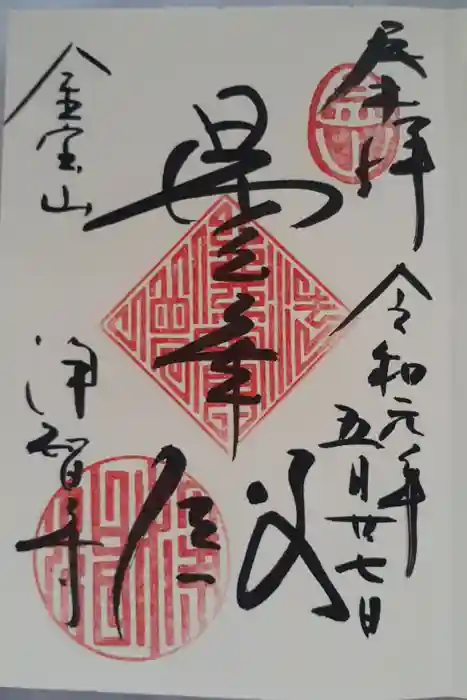 奉拝
令和元年
五月廿七日
曇華殿
金宝山
浄智寺